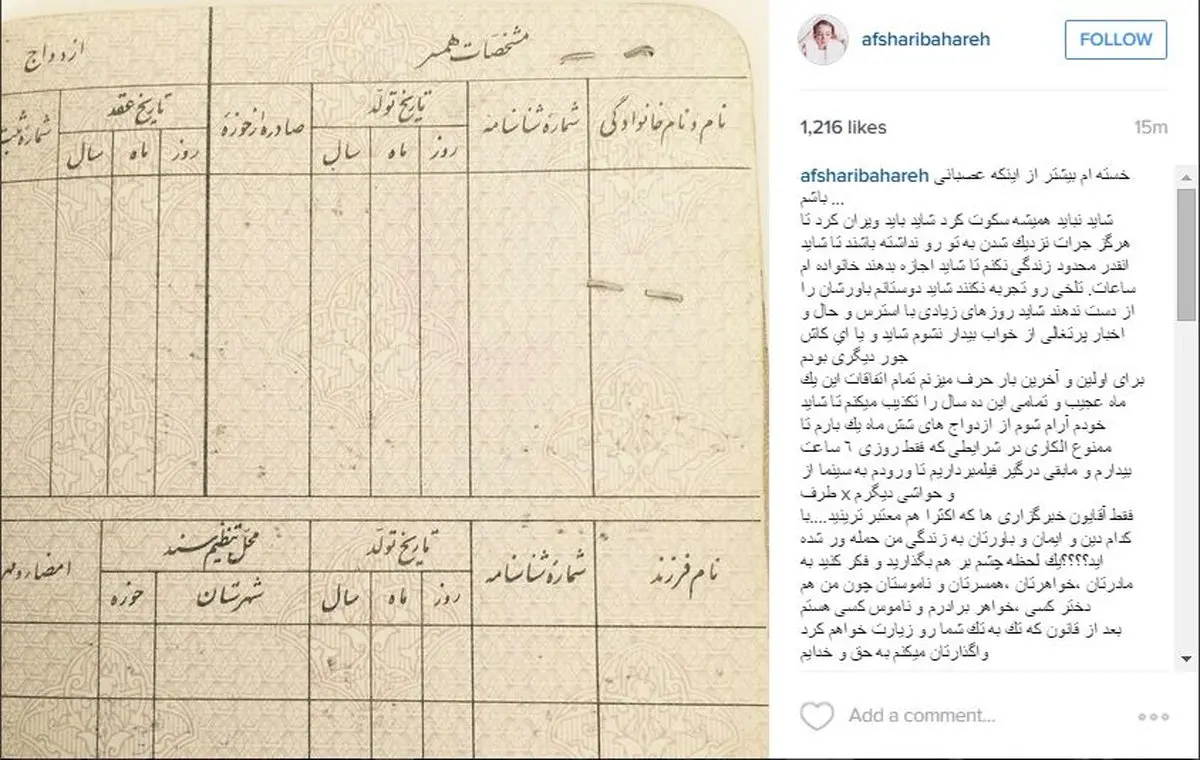 مشخصات همسر
ازدواج
نام و نام خانوادگی
شمارهٔ شناسنامه
تاریخ تولد
روز
ماه
سال
صادره از حوزه
تاریخ عقد
روز
ماه
سال
نام فرزند
شمارهٔ شناسنامه
تاریخ تولد
روز
ماه
سال
محل تنظیم سند
شهرستان
حوزه
afsharibahareh
FOLLOW
1,216 likes
15m
afsharibahareh خسته ام بیشتر از اینکه عصبانی
باشم ...
شاید نباید همیشه سکوت کرد شاید باید ویران کرد تا
هرگز جرات نزدیك شدن به تو رو نداشته باشند تا شاید
انقدر محدود زندگی نکنم تا شاید اجازه بدهند خانواده ام
ساعات. تلخی رو تجربه نکنند شاید دوستانم باورشان را
از دست ندهند شاید روزهای زیادی با استرس و حال و
اخبار پرتغالی از خواب بیدار نشوم شاید و یا اي کاش
جور دیگری بودم
برای اولین و آخرین بار حرف میزنم تمام اتفاقات این یك
ماه عجیب و تمامی این ده سال را تکذیب میکنم تا شاید
خودم آرام شوم از ازدواج های شش ماه یك بارم تا
ممنوع الکاری در شرایطی که فقط روزی ٦ ساعت
بیدارم و مابقی درگیر فیلمبرداریم تا ورودم به سینما از
طرف x و حواشی دیگرم
فقط آقایون خبرگزاری ها که اکثرا هم معتبر ترینید....با
کدام دین و ایمان و باورتان به زندگی من حمله ور شده
اید؟؟؟؟یك لحظه چشم بر هم بگذارید و فکر کنید به
مادرتان ،خواهرتان ،همسرتان و ناموستان چون من هم
دختر کسی ،خواهر برادرم و ناموس کسی هستم
بعد از قانون که تك به تك شما رو زیارت خواهم کرد
واگذارتان میکنم به حق و خدایم
Add a comment...